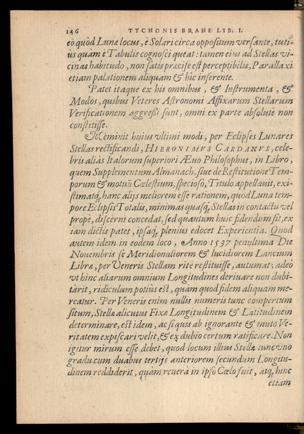 146 TYCHONIS BRAHE LIB. I.
eò quòd Luna locus, è Solari circa oppositum versante, tuti-
us quàm è Tabulis cognosci queat: tamen eius ad Stellas vi-
cinas habitudo, non satis præcisè est perceptibilis, Parallaxi
etiam palationem aliquam & hîc inferente.
Patet itaque ex his omnibus, & Instrumenta, &
Modos, quibus Veteres Astronomi Affixarum Stellarum
Verificationem aggressi sunt, omni ex parte absolutè non
constitisse.
Meminit huius vltimi modi, per Eclipses Lunares
Stellas rectificandi, HIERONIMVS CARDANVS, cele-
bris aliàs Italorum superiori Æuo Philosophus, in Libro,
quem Supplementum Almanach, siue de Restitutione Tem-
porum & motuũ Cœlestium, specioso, Titulo appellauit, exi-
stimatq́; hanc alijs meliorem esse rationem, quod Luna tem-
pore Eclipsis Totalis, minimas quasq́; Stellas in contactu vel
propè, discerni concedat, sed quantum huic fidendum sit, ex
iam dictis patet, ipsaq́; plenius edocet Experientia. Quod
autem idem in eodem loco, Anno 1537 penultima Die
Nouembris se Meridionaliorem & lucidiorem Lancium
Libræ, per Veneris Stellam ritè restituisse, autumat; adeò
vt hinc aliarum omnium Longitudines deriuare non dubi-
târit, ridiculum potiùs est, quàm quod fidem aliquam me-
reatur. Per Veneris enim nullis numeris tunc compertum
situm, Stella alicuius Fixæ Longitudinem & Latitudinem
determinare, est idem, ac si quis ab ignorante & muto Ve-
ritatem expiscari velit, & ex dubio certum ratificare. Non
igitur mirum esse debet, quod locum illius Stellæ tunc vno
gradu cum duabus tertijs anteriorem secundum Longitu-
dinem reddiderit, quàm reuera in ipso Cœlo fuit, atq́; hinc
etiam